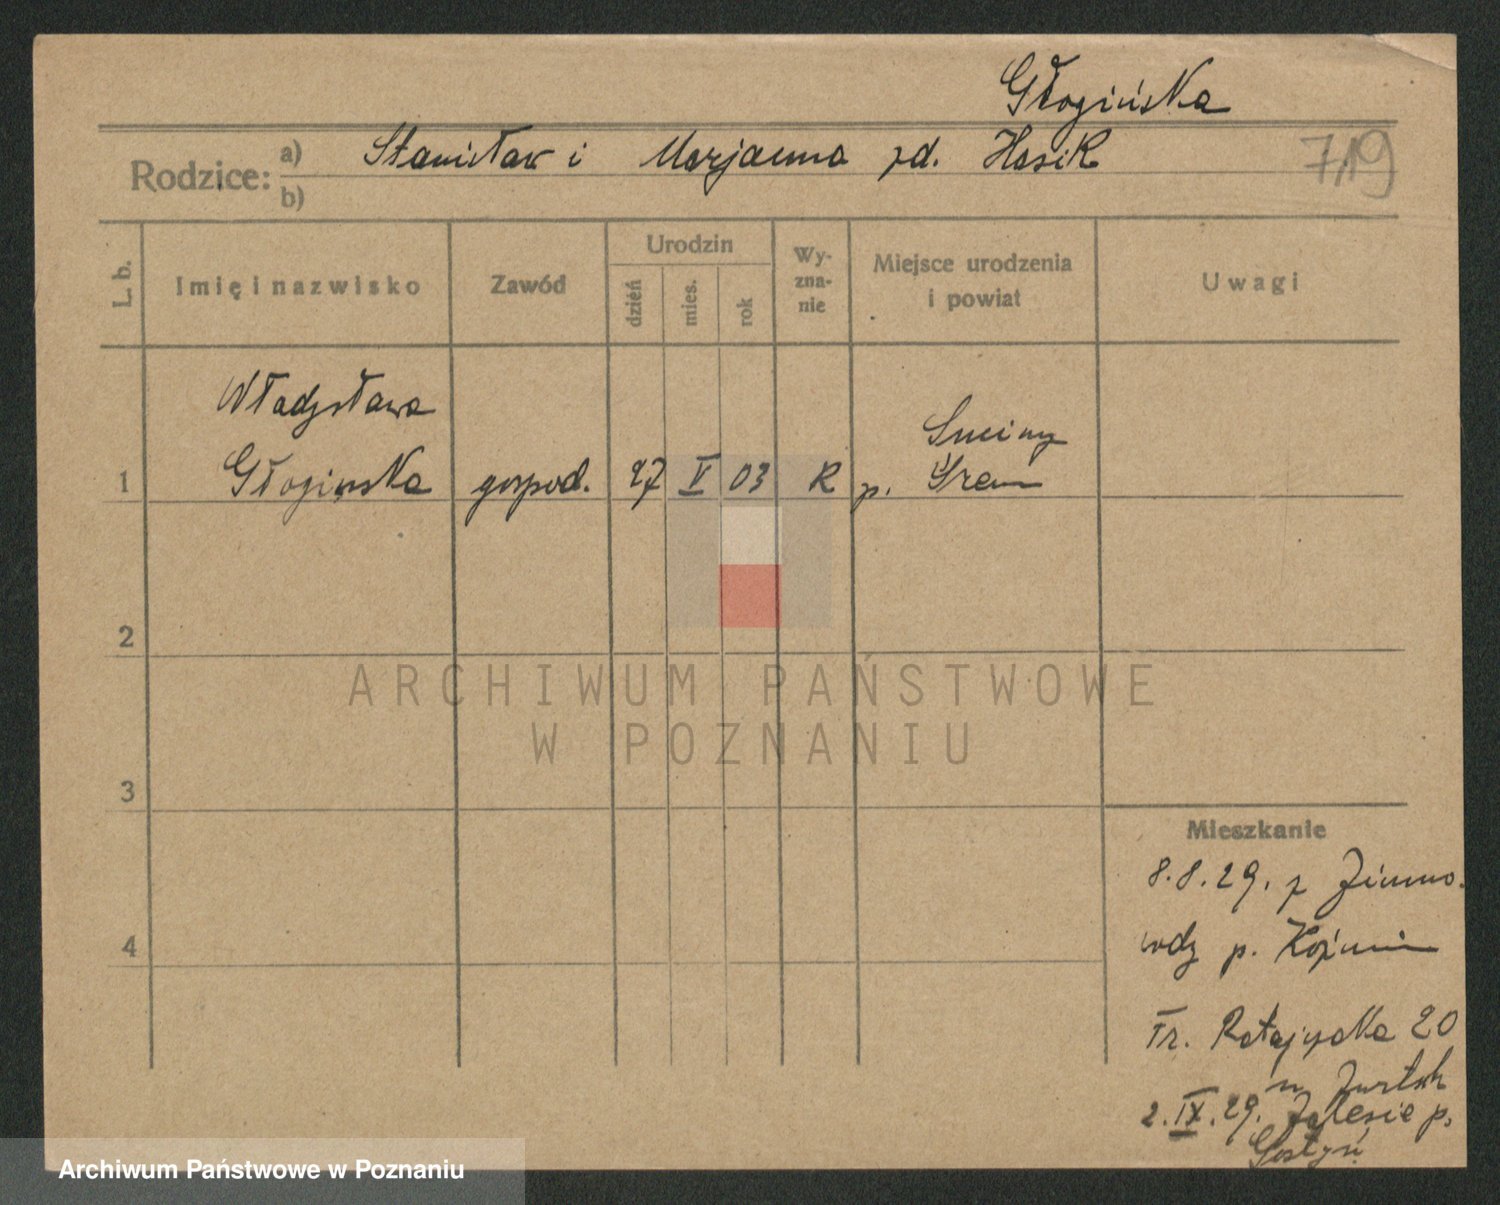 Głogińska
Rodzice: a) Stanisław i Marjanna zd. Hasik
b)
7/19
L. b.
Imię i nazwisko
Zawód
Urodzin
dzień
mies.
rok
Wy-
zna-
nie
Miejsce urodzenia
i powiat
Uwagi
Władysława
1 Głogińska gospod. 27 V 03 R p. Śrem
2
ARCHIWUM PAŃSTWOWE
W POZNANIU
3
Mieszkanie
8.8.29. z Zimno-
4 wody p. Koźmin
Tr. Ratajczaka 20
2.IX.29. Zalesie p.
Gostyń
Archiwum Państwowe w Poznaniu